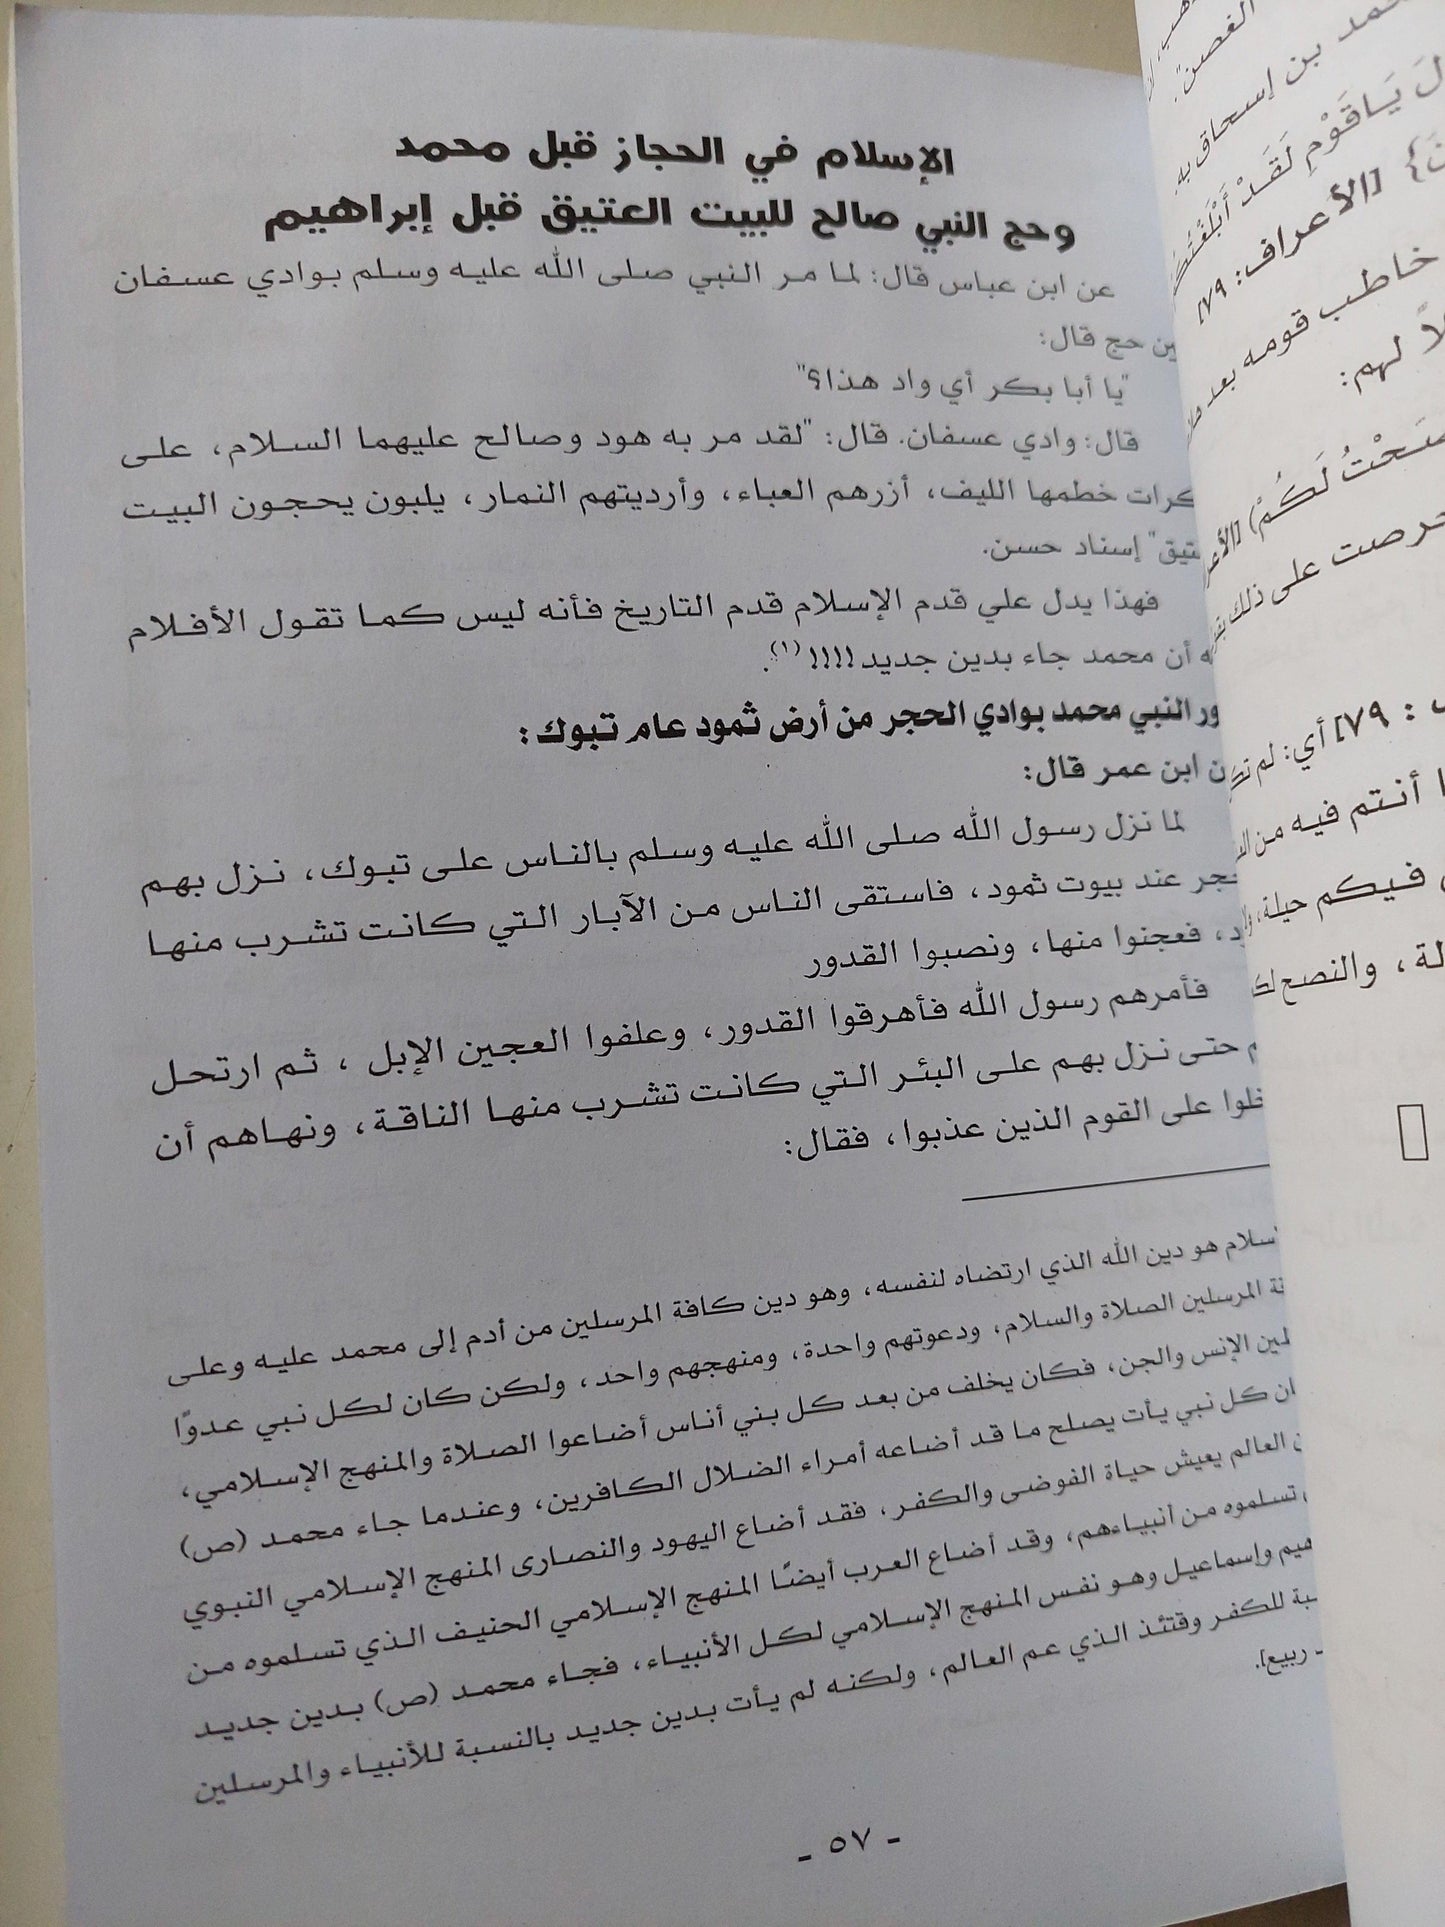 الإسلام في الحجاز قبل محمد
وحج النبي صالح للبيت العتيق قبل إبراهيم
عن ابن عباس قال: لما مر النبي صلى الله عليه وسلم بوادي عسفان
حج قال:
"يا أبا بكر أي واد هذا؟"
قال: وادي عسفان. قال: "لقد مر به هود وصالح عليهما السلام، على
خطمها الليف، أزرهم العباء، وأرديتهم النمار، يلبون يحجون البيت
إسناد حسن.
فهذا يدل علي قدم الإسلام قدم التاريخ فأنه ليس كما تقول الأفلام
أن محمد جاء بدين جديد!!!! (١).
النبي محمد بوادي الحجر من أرض ثمود عام تبوك:
ابن عمر قال:
لما نزل رسول الله صلى الله عليه وسلم بالناس على تبوك، نزل بهم
عند بيوت ثمود، فاستقى الناس من الآبار التي كانت تشرب منها
، فعجنوا منها، ونصبوا القدور
فأمرهم رسول الله فأهرقوا القدور، وعلفوا العجين الإبل، ثم ارتحل
حتى نزل بهم على البئر التي كانت تشرب منها الناقة، ونهاهم أن
على القوم الذين عذبوا، فقال:
هو دين الله الذي ارتضاه لنفسه، وهو دين كافة المرسلين من أدم إلى محمد عليه وعلى
المرسلين الصلاة والسلام، ودعوتهم واحدة، ومنهجهم واحد، ولكن كان لكل نبي عدوًا
الإنس والجن، فكان يخلف من بعد كل بني أناس أضاعوا الصلاة والمنهج الإسلامي،
كل نبي يأت يصلح ما قد أضاعه أمراء الضلال الكافرين، وعندما جاء محمد (ص)
العالم يعيش حياة الفوضى والكفر، فقد أضاع اليهود والنصارى المنهج الإسلامي النبوي
تسلموه من أنبياءهم، وقد أضاع العرب أيضًا المنهج الإسلامي الحنيف الذي تسلموه من
وإسماعيل وهو نفس المنهج الإسلامي لكل الأنبياء، فجاء محمد (ص) بدين جديد
للكفر وقتئذ الذي عم العالم، ولكنه لم يأت بدين جديد بالنسبة للأنبياء والمرسلين
ربيع].
- ٥٧ -
الغصن".
بن إسحاق به.
يَاقَوْمِ لَقَدْ
[الأعراف: ٧٩]
خاطب قومه بعد
لهم:
لَكُمْ)
حرصت على ذلك
: ٧٩] أي: لم
أنتم فيه من
فيكم حيلة،
، والنصح